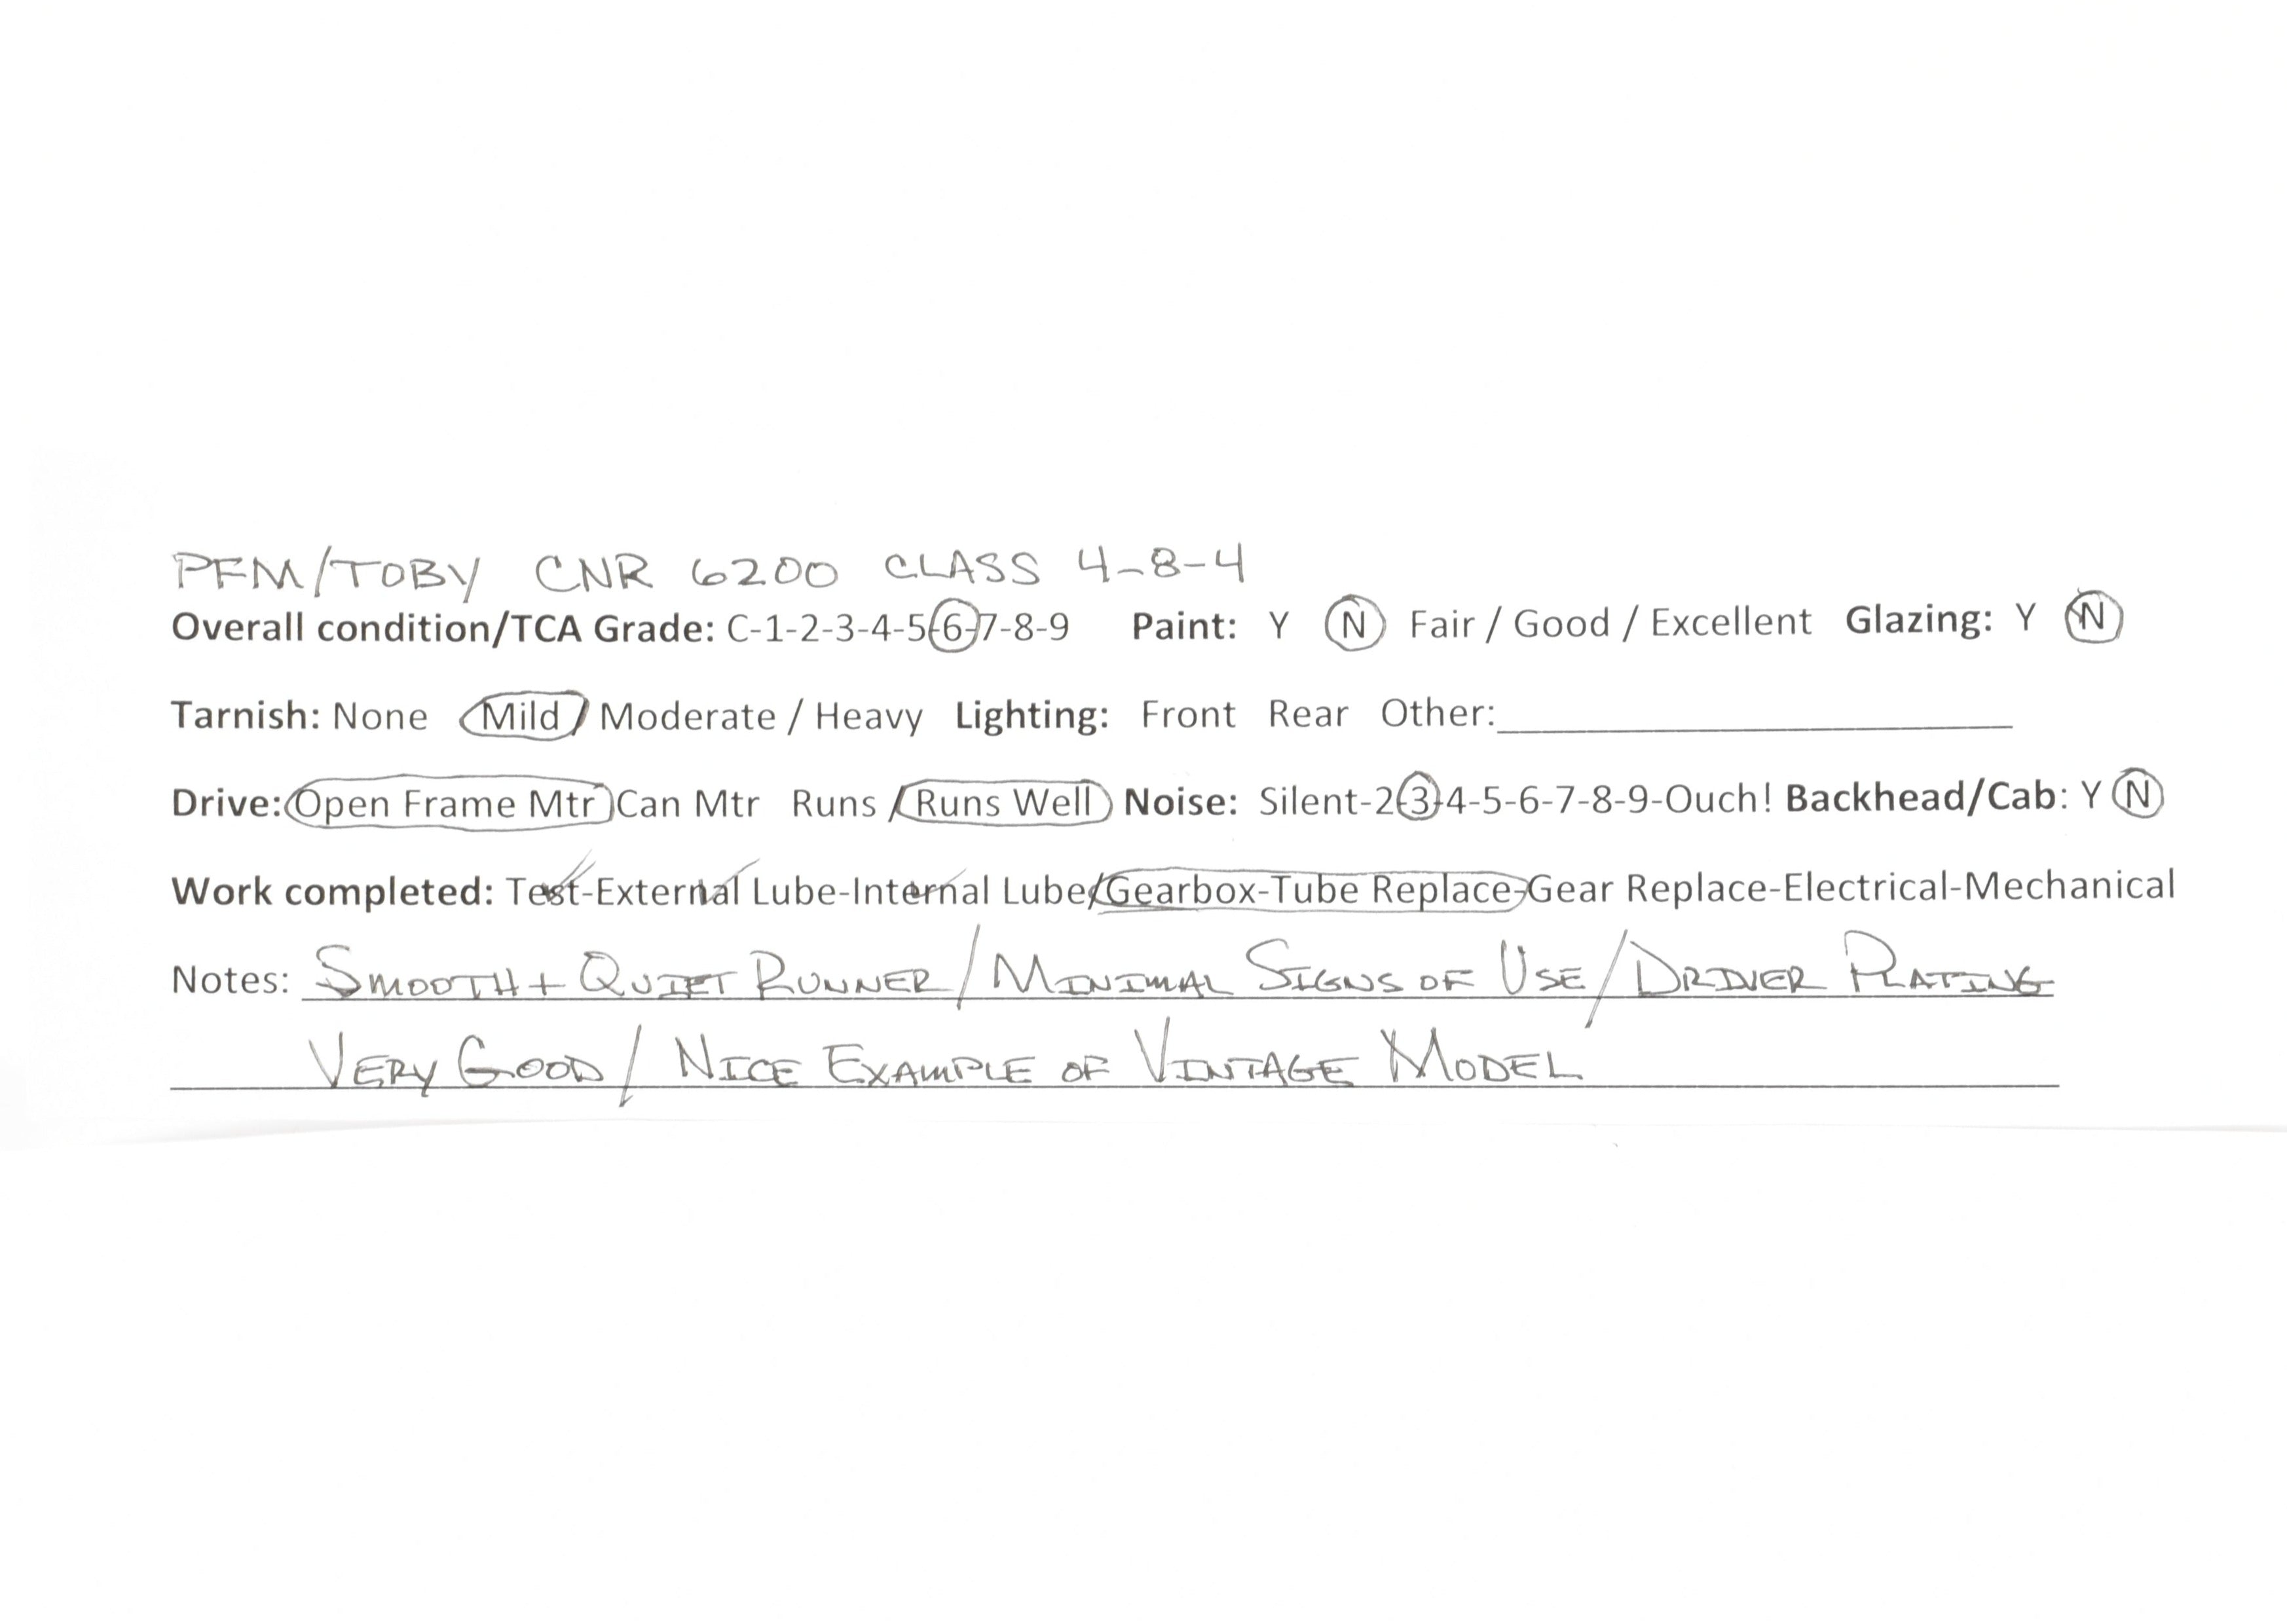 PFM/TOBY CNR 6200 CLASS 4-8-4
Overall condition/TCA Grade: C-1-2-3-4-5-6-7-8-9 Paint: Y N Fair / Good / Excellent Glazing: Y N
Tarnish: None Mild / Moderate / Heavy Lighting: Front Rear Other:
Drive: Open Frame Mtr Can Mtr Runs / Runs Well Noise: Silent-2-3-4-5-6-7-8-9-Ouch! Backhead/Cab: Y N
Work completed: Test-External Lube-Internal Lube/Gearbox-Tube Replace-Gear Replace-Electrical-Mechanical
Notes: SMOOTH + QUIET RUNNER / MINIMAL SIGNS OF USE / DRIVER PLATING
VERY GOOD / NICE EXAMPLE OF VINTAGE MODEL